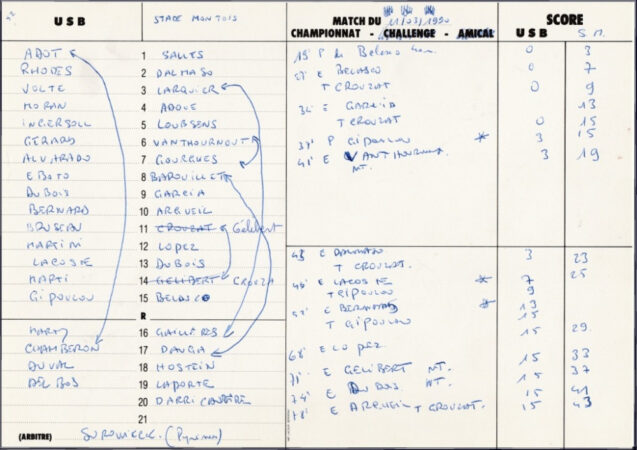 USB STADE MONTOIS MATCH DU 11/03/1990 SCORE
CHAMPIONNAT - CHALLENGE - AMICAL USB S.M.
ADOT 1 SALLES
RHODES 2 DALMASO
VOLTE 3 LARQUIER
MORAN 4 ADOUE
INGERSOLL 5 LOUSSENS
GERARD 6 VANTHOURNOUT
ALVARADO 7 GOURGUES
EBOTO 8 BAROUILLET
DUBOIS 9 GARCIA
BERNARD 10 ARGUEIL
BRUSEAU 11 CROUZAT Gélibert
MARTINI 12 LOPEZ
LACOSTE 13 DUBOIS
MARTI 14 GELIBERT CROUZAT
GIPOULOU 15 BELASCO
R
MARTY 16 GAILLÈRES
CHAMBERON 17 DAUGA
DUVAL 18 HOSTEIN
DELBOS 19 LAPORTE
20 DARRICARRÈRE
21
(ARBITRE)
15' P de 0 3
E BELASCO 0 7
T CROUZAT 0 9
E GARCIA 13
T CROUZAT 0 15
P GIPOULOU * 3 15
E VANTHOURNOUT 3 19
MT.
E DALMASO 3 23
T CROUZAT. 25
E LACOSTE * 7
T GIPOULOU 9
E BERNARD * 13
T GIPOULOU 15 29
68' E LOPEZ 15 33
E GELIBERT MT. 15 37
74' E DUBOIS MT. 15 41
78' E ARGUEIL T CROUZAT. 15 43